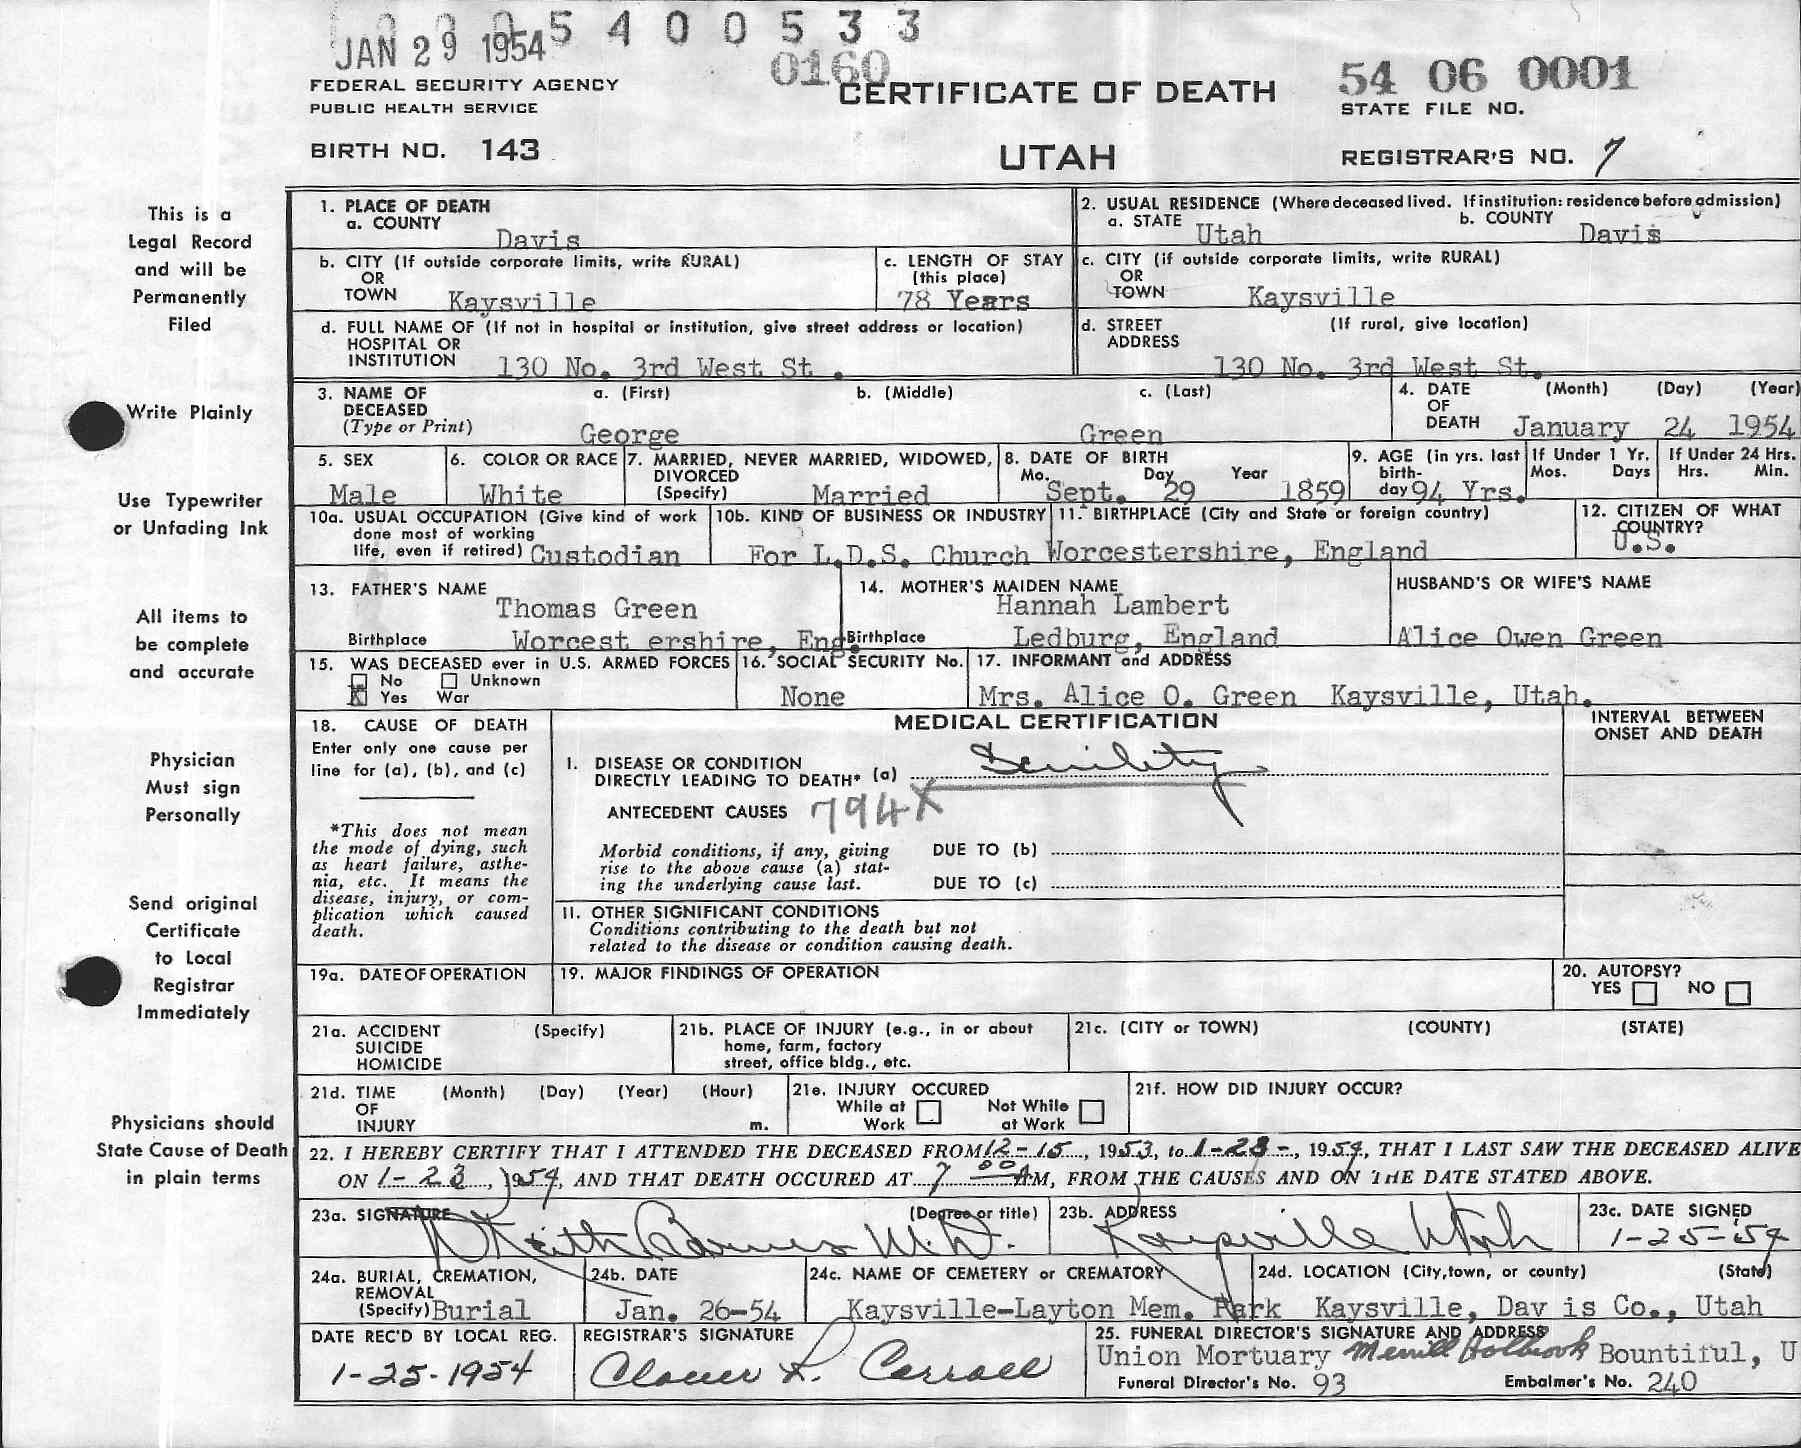 0005400533
JAN 29 1954
0160
FEDERAL SECURITY AGENCY
PUBLIC HEALTH SERVICE
CERTIFICATE OF DEATH
54 06 0001
STATE FILE NO.
BIRTH NO. 143
UTAH
REGISTRAR'S NO. 7
This is a
Legal Record
and will be
Permanently
Filed
Write Plainly
Use Typewriter
or Unfading Ink
All items to
be complete
and accurate
Physician
Must sign
Personally
Send original
Certificate
to Local
Registrar
Immediately
Physicians should
State Cause of Death
in plain terms
1. PLACE OF DEATH
a. COUNTY
Davis
2. USUAL RESIDENCE (Where deceased lived. If institution: residence before admission)
a. STATE Utah b. COUNTY Davis
b. CITY (If outside corporate limits, write RURAL)
OR
TOWN Kaysville
c. LENGTH OF STAY
(this place)
78 Years
c. CITY (if outside corporate limits, write RURAL)
OR
TOWN Kaysville
d. FULL NAME OF (If not in hospital or institution, give street address or location)
HOSPITAL OR
INSTITUTION 130 No. 3rd West St .
d. STREET (If rural, give location)
ADDRESS
130 No. 3rd West St.
3. NAME OF a. (First) b. (Middle) c. (Last)
DECEASED
(Type or Print) George Green
4. DATE (Month) (Day) (Year)
OF
DEATH January 24 1954
5. SEX
Male
6. COLOR OR RACE
White
7. MARRIED, NEVER MARRIED, WIDOWED,
DIVORCED
(Specify) Married
8. DATE OF BIRTH
Mo. Day Year
Sept. 29 1859
9. AGE (in yrs. last
birth-
day 94 Yrs.
If Under 1 Yr.
Mos. Days
If Under 24 Hrs.
Hrs. Min.
10a. USUAL OCCUPATION (Give kind of work
done most of working
life, even if retired) Custodian
10b. KIND OF BUSINESS OR INDUSTRY
For L.D.S. Church
11. BIRTHPLACE (City and State or foreign country)
Worcestershire, England
12. CITIZEN OF WHAT
COUNTRY?
U.S.
13. FATHER'S NAME
Thomas Green
Birthplace Worcest ershire, Eng.
14. MOTHER'S MAIDEN NAME
Hannah Lambert
Birthplace Ledburg, England
HUSBAND'S OR WIFE'S NAME
Alice Owen Green
15. WAS DECEASED ever in U.S. ARMED FORCES
No Unknown
Yes War
16. SOCIAL SECURITY No.
None
17. INFORMANT and ADDRESS
Mrs. Alice O. Green Kaysville, Utah.
18. CAUSE OF DEATH
Enter only one cause per
line for (a), (b), and (c)
*This does not mean
the mode of dying, such
as heart failure, asthe-
nia, etc. It means the
disease, injury, or com-
plication which caused
death.
MEDICAL CERTIFICATION
INTERVAL BETWEEN
ONSET AND DEATH
I. DISEASE OR CONDITION
DIRECTLY LEADING TO DEATH* (a) Senility
ANTECEDENT CAUSES 794X
Morbid conditions, if any, giving
rise to the above cause (a) stat-
ing the underlying cause last.
DUE TO (b)
DUE TO (c)
II. OTHER SIGNIFICANT CONDITIONS
Conditions contributing to the death but not
related to the disease or condition causing death.
19a. DATE OF OPERATION
19. MAJOR FINDINGS OF OPERATION
20. AUTOPSY?
YES NO
21a. ACCIDENT (Specify)
SUICIDE
HOMICIDE
21b. PLACE OF INJURY (e.g., in or about
home, farm, factory
street, office bldg., etc.
21c. (CITY or TOWN) (COUNTY) (STATE)
21d. TIME (Month) (Day) (Year) (Hour)
OF
INJURY m.
21e. INJURY OCCURED
While at Work
Not While at Work
21f. HOW DID INJURY OCCUR?
22. I HEREBY CERTIFY THAT I ATTENDED THE DECEASED FROM 12-15, 1953, to 1-23-, 1954, THAT I LAST SAW THE DECEASED ALIVE
ON 1-23, 1954, AND THAT DEATH OCCURED AT 7 00 AM, FROM THE CAUSES AND ON THE DATE STATED ABOVE.
23a. SIGNATURE (Degree or title)
Keith Barnes M.D.
23b. ADDRESS
Kaysville Utah
23c. DATE SIGNED
1-25-54
24a. BURIAL, CREMATION,
REMOVAL
(Specify) Burial
24b. DATE
Jan. 26-54
24c. NAME OF CEMETERY or CREMATORY
Kaysville-Layton Mem. Park
24d. LOCATION (City, town, or county) (State)
Kaysville, Dav is Co., Utah
DATE REC'D BY LOCAL REG.
1-25-1954
REGISTRAR'S SIGNATURE
L. Carroll
25. FUNERAL DIRECTOR'S SIGNATURE AND ADDRESS
Union Mortuary Merrill Holbrook Bountiful, U
Funeral Director's No. 93 Embalmer's No. 240